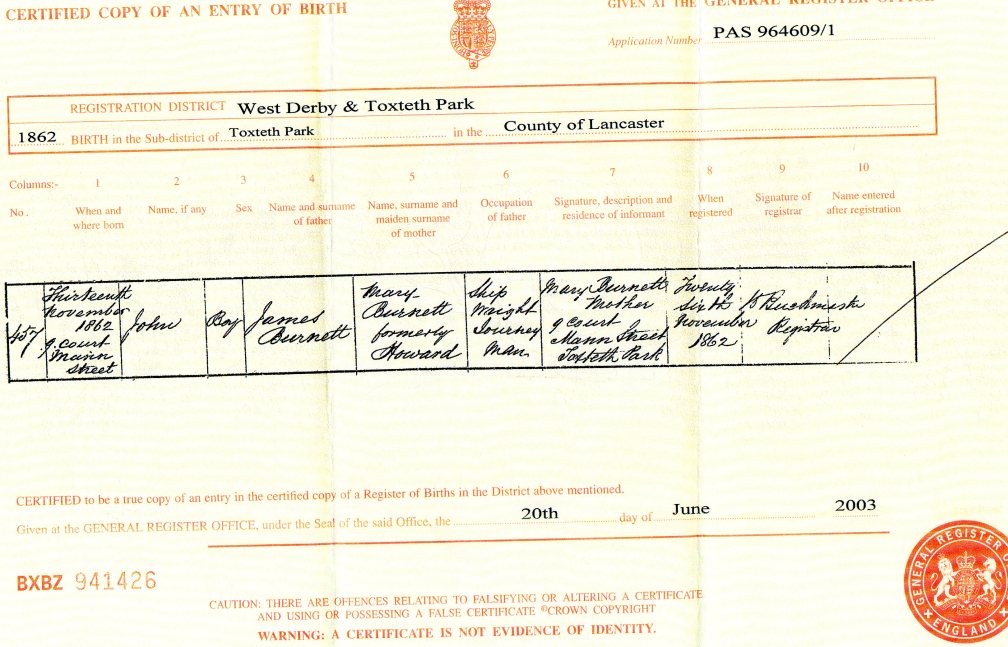 CERTIFIED COPY OF AN ENTRY OF BIRTH
GIVEN AT THE GENERAL REGISTER OFFICE
Application Number PAS 964609/1
REGISTRATION DISTRICT West Derby & Toxteth Park
1862 BIRTH in the Sub-district of Toxteth Park in the County of Lancaster
Columns:- 1 2 3 4 5 6 7 8 9 10
No. When and where born Name, if any Sex Name and surname of father Name, surname and maiden surname of mother Occupation of father Signature, description and residence of informant When registered Signature of registrar Name entered after registration
457
Thirteenth
November
1862
9 court
Mann
Street
John
Boy
James
Burnett
Mary
Burnett
formerly
Howard
Ship
Wright
Journey
Man
Mary Burnett
Mother
9 Court
Mann Street
Toxteth Park
Twenty
Sixth
November
1862
Registrar
CERTIFIED to be a true copy of an entry in the certified copy of a Register of Births in the District above mentioned.
Given at the GENERAL REGISTER OFFICE, under the Seal of the said Office, the 20th day of June 2003
BXBZ 941426
CAUTION: THERE ARE OFFENCES RELATING TO FALSIFYING OR ALTERING A CERTIFICATE
AND USING OR POSSESSING A FALSE CERTIFICATE ©CROWN COPYRIGHT
WARNING: A CERTIFICATE IS NOT EVIDENCE OF IDENTITY.
GENERAL REGISTER
ENGLAND